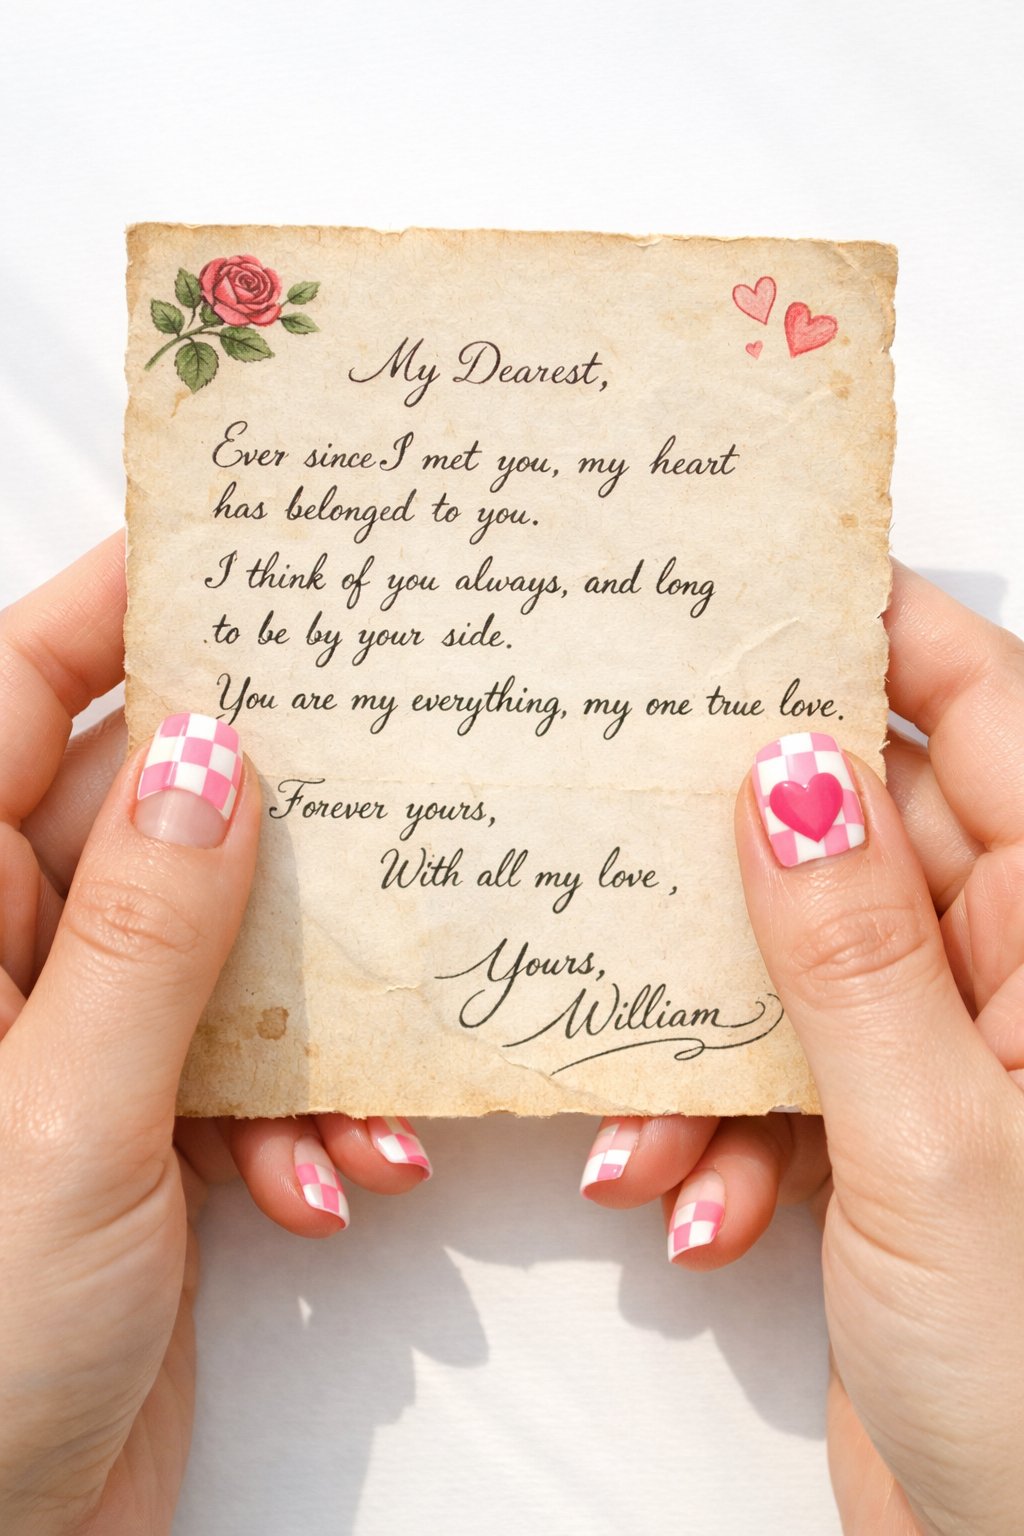 My Dearest,
Ever since I met you, my heart
has belonged to you.
I think of you always, and long
to be by your side.
You are my everything, my one true love.
Forever yours,
With all my love,
Yours,
William